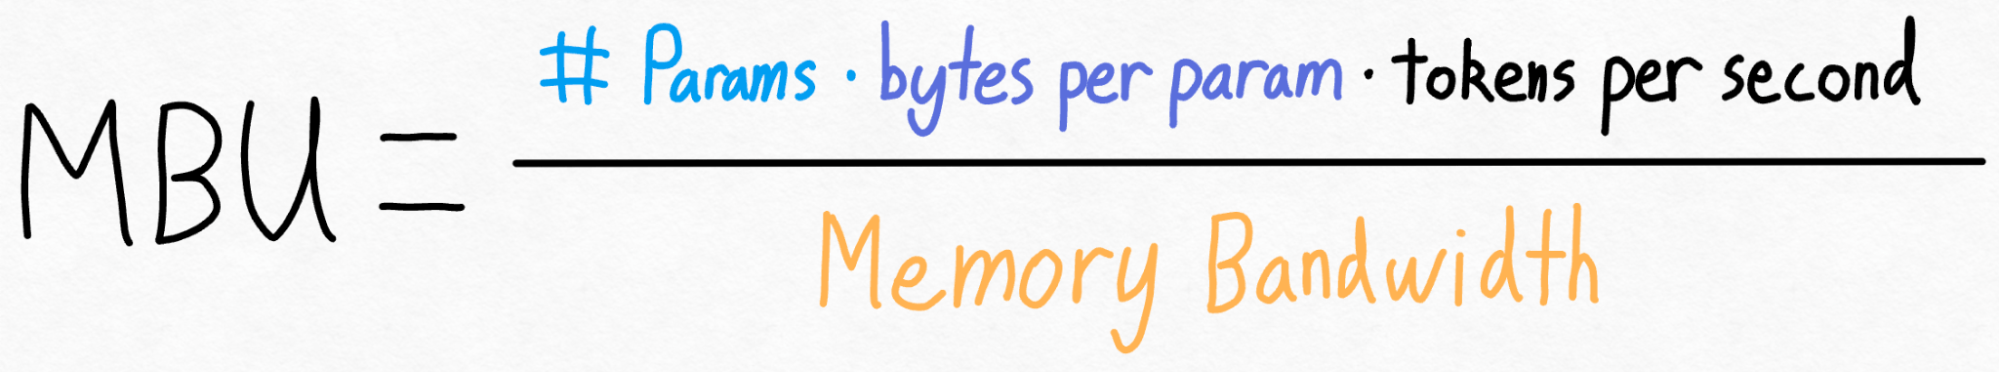 # Params · bytes per param · tokens per second
MBU =
Memory Bandwidth